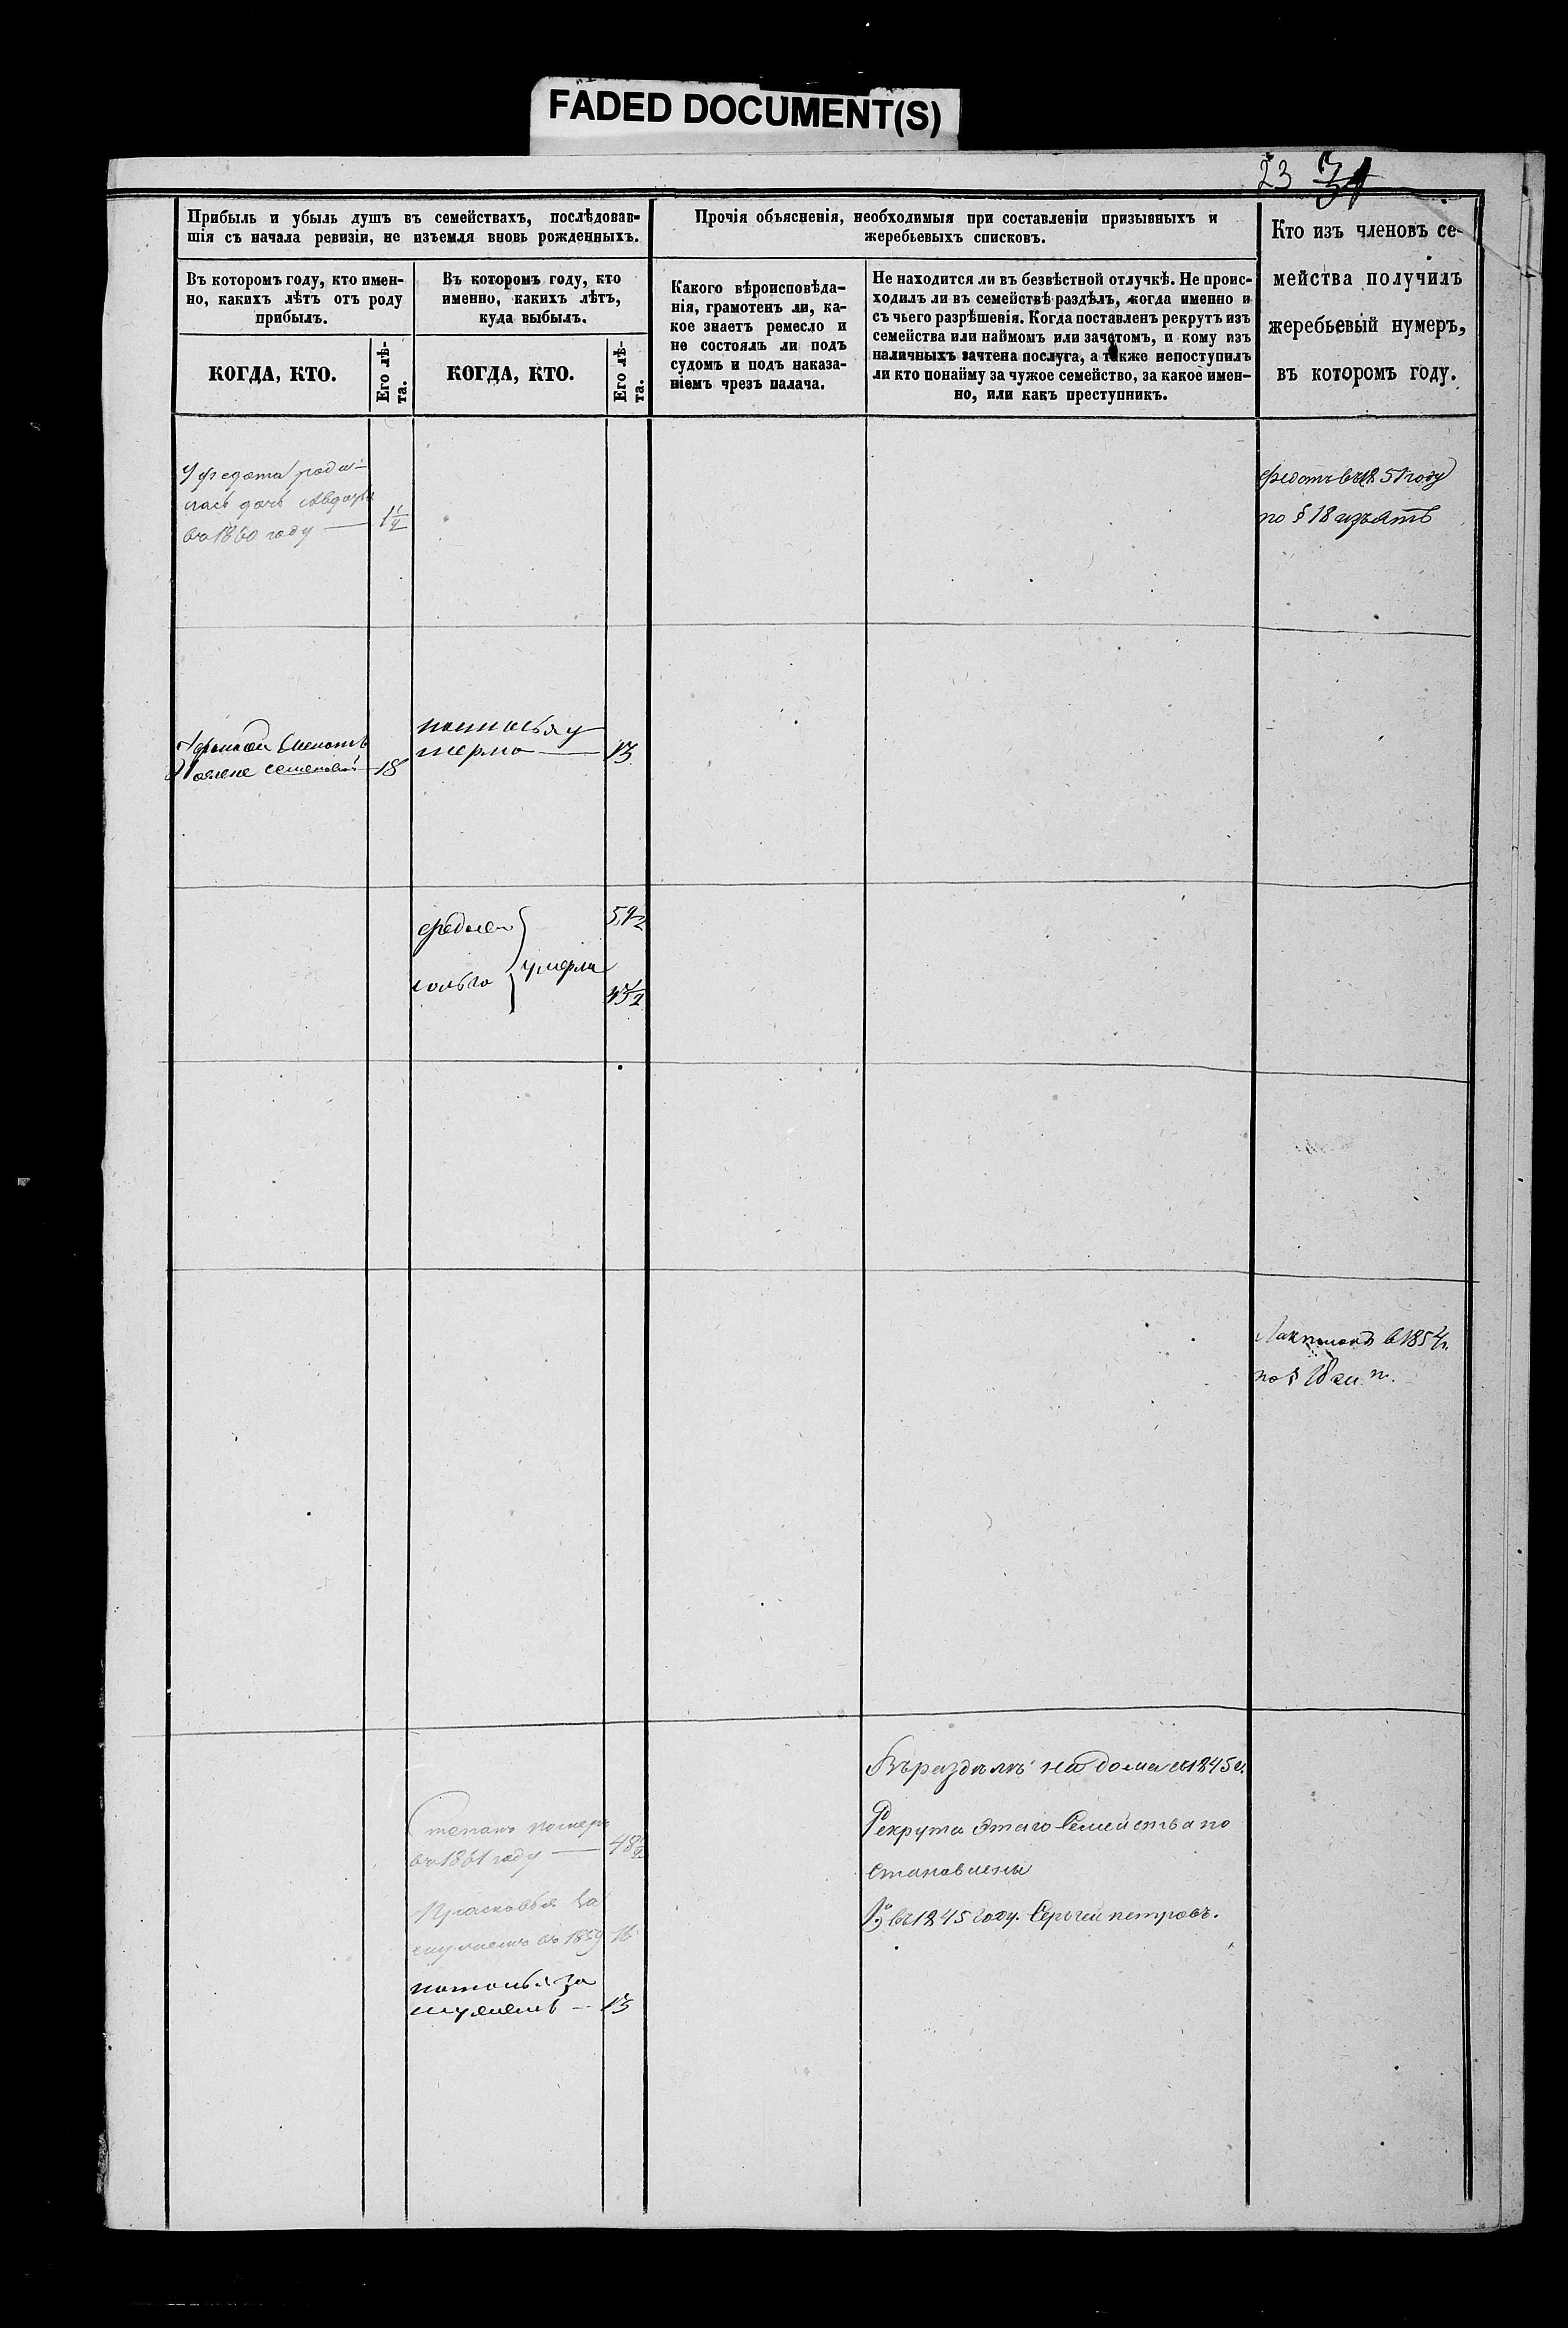 FADED DOCUMENT(S)
23 31
Прибыль и убыль душъ въ семействахъ, послѣдовав-
шія съ начала ревизіи, не изъемля вновь рожденныхъ.
Прочія объясненія, необходимыя при составленіи призывныхъ и
жеребьевыхъ списковъ.
Кто изъ членовъ се-
мейства получилъ
жеребьевый нумеръ,
въ которомъ году.
Въ которомъ году, кто имен-
но, какихъ лѣтъ отъ роду
прибылъ.
Въ которомъ году, кто
именно, какихъ лѣтъ,
куда выбылъ.
Какого вѣроисповѣда-
нія, грамотенъ ли, ка-
кое знаетъ ремесло и
не состоялъ ли подъ
судомъ и подъ наказа-
ніемъ чрезъ палача.
Не находится ли въ безвѣстной отлучкѣ. Не проис-
ходилъ ли въ семействѣ раздѣлъ, когда именно и
съ чьего разрѣшенія. Когда поставленъ рекрутъ изъ
семейства или наймомъ или зачетомъ, и кому изъ
наличныхъ зачтена послуга, а также непоступилъ
ли кто понайму за чужое семейство, за какое имен-
но, или какъ преступникъ.
КОГДА, КТО.
Его лѣ-
та.
КОГДА, КТО.
Его лѣ-
та.
У федота роди-
лась дочь Авдотья
во 1860 году — 1 1/2
федотъ въ 1851 году
по § 18 изъятъ
18
умерла — 13
умерли
въ 1854 г.
по §
Въ раздѣлѣ на дома съ 1845 г.
Рекрута этаго Семейства по
становлены
1е, въ 1845 году. Сергѣй петровъ.
Степанъ померъ
во 1861 году — 48 1/2
Прасковья за
мужемъ во 1859 16
наталья за
мужемъ — 13